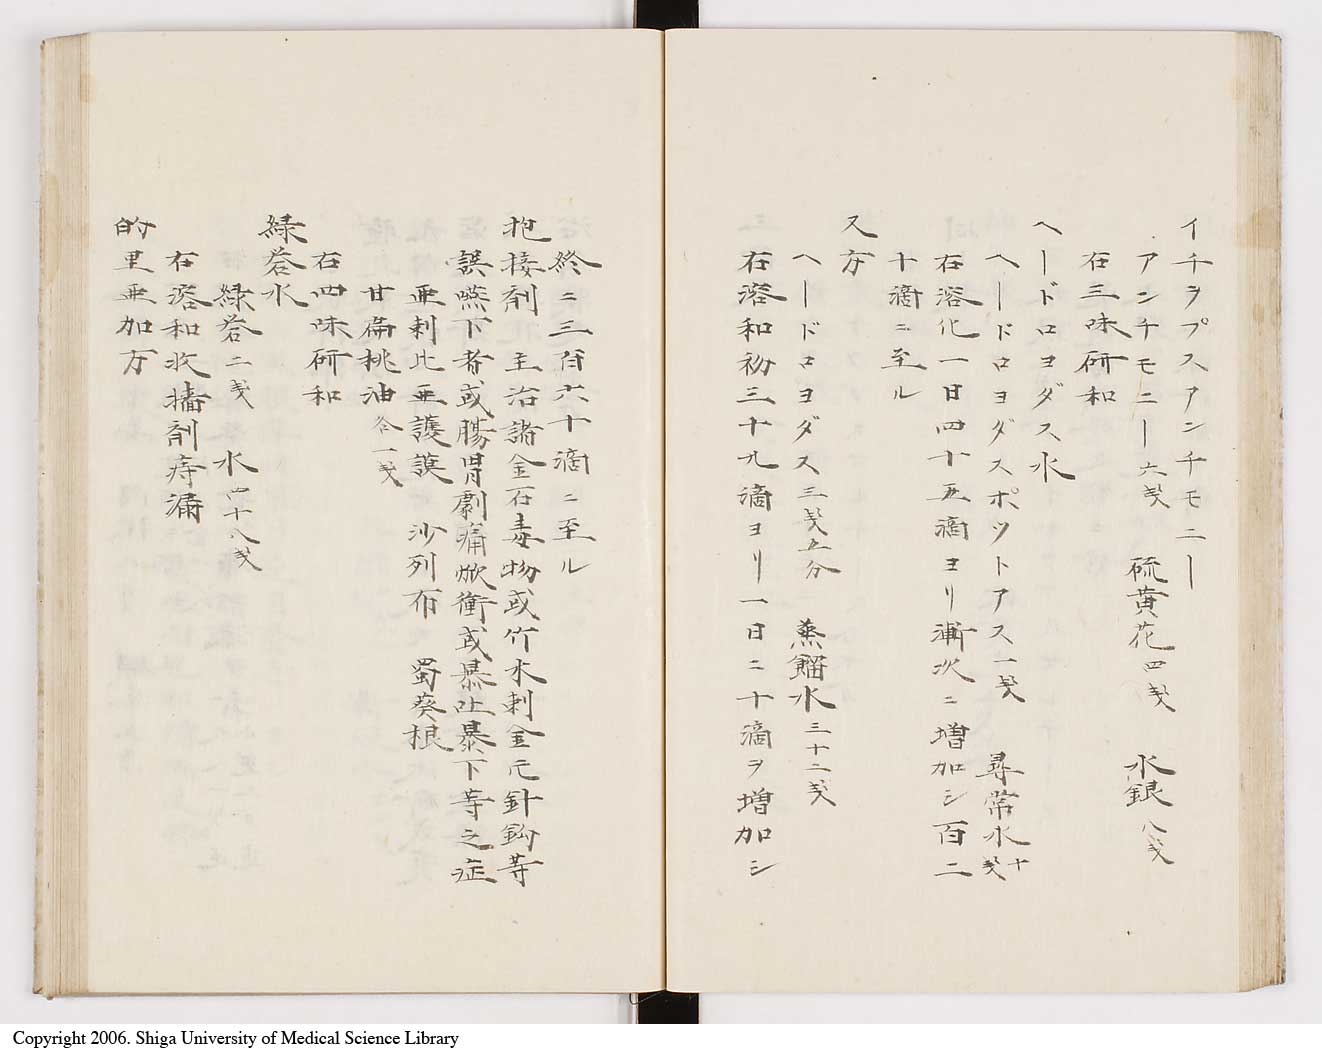 イチヲプスアンチモニー
アンチモニー 六戔 硫黄花 四戔 水銀 八戔
右三味研和
ヘードロヨダス水
ヘードロヨダスポツトアス 一戔 尋常水 十戔
右溶化一日四十五滴ヨリ漸次ニ増加シ百二
十滴ニ至ル
又方
ヘードロヨダス 三戔五分 蒸餾水 三十二戔
右溶和初三十九滴ヨリ一日ニ十滴ヲ増加シ
終ニ三百六十滴ニ至ル
抱接剤 主治諸金石毒物或竹木刺金元針鈎等
誤嚥下者或腸胃劇痛焮衝或暴吐暴下等之症
亜剌比亜護謨 沙列布 蜀葵根
甘扁桃油 各一戔
右四味研和
緑礬水
緑礬 二戔 水 四十八戔
右溶和收摺剤痔漏
的里亜加方
Copyright 2006. Shiga University of Medical Science Library